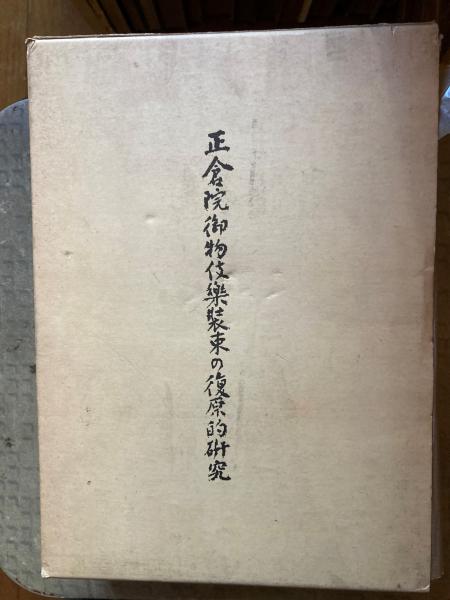 正倉院御物伎樂裝束の復原的研究